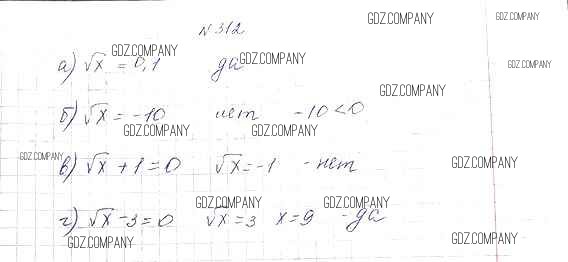 N 312
GDZ.COMPANY GDZ.COMPANY
GDZ.COMPANY
а) √x = 0,1 да GDZ.COMPANY GDZ.COMPANY
GDZ.COMPANY
б) √x = -10 нет -10 < 0
GDZ.COMPANY GDZ.COMPANY
GDZ.COMPANY
в) √x + 1 = 0 √x = -1 - нет GDZ.COMPANY
GDZ.COMPANY GDZ.COMPANY
г) √x - 3 = 0 √x = 3 x = 9 - да
GDZ.COMPANY GDZ.COMPANY